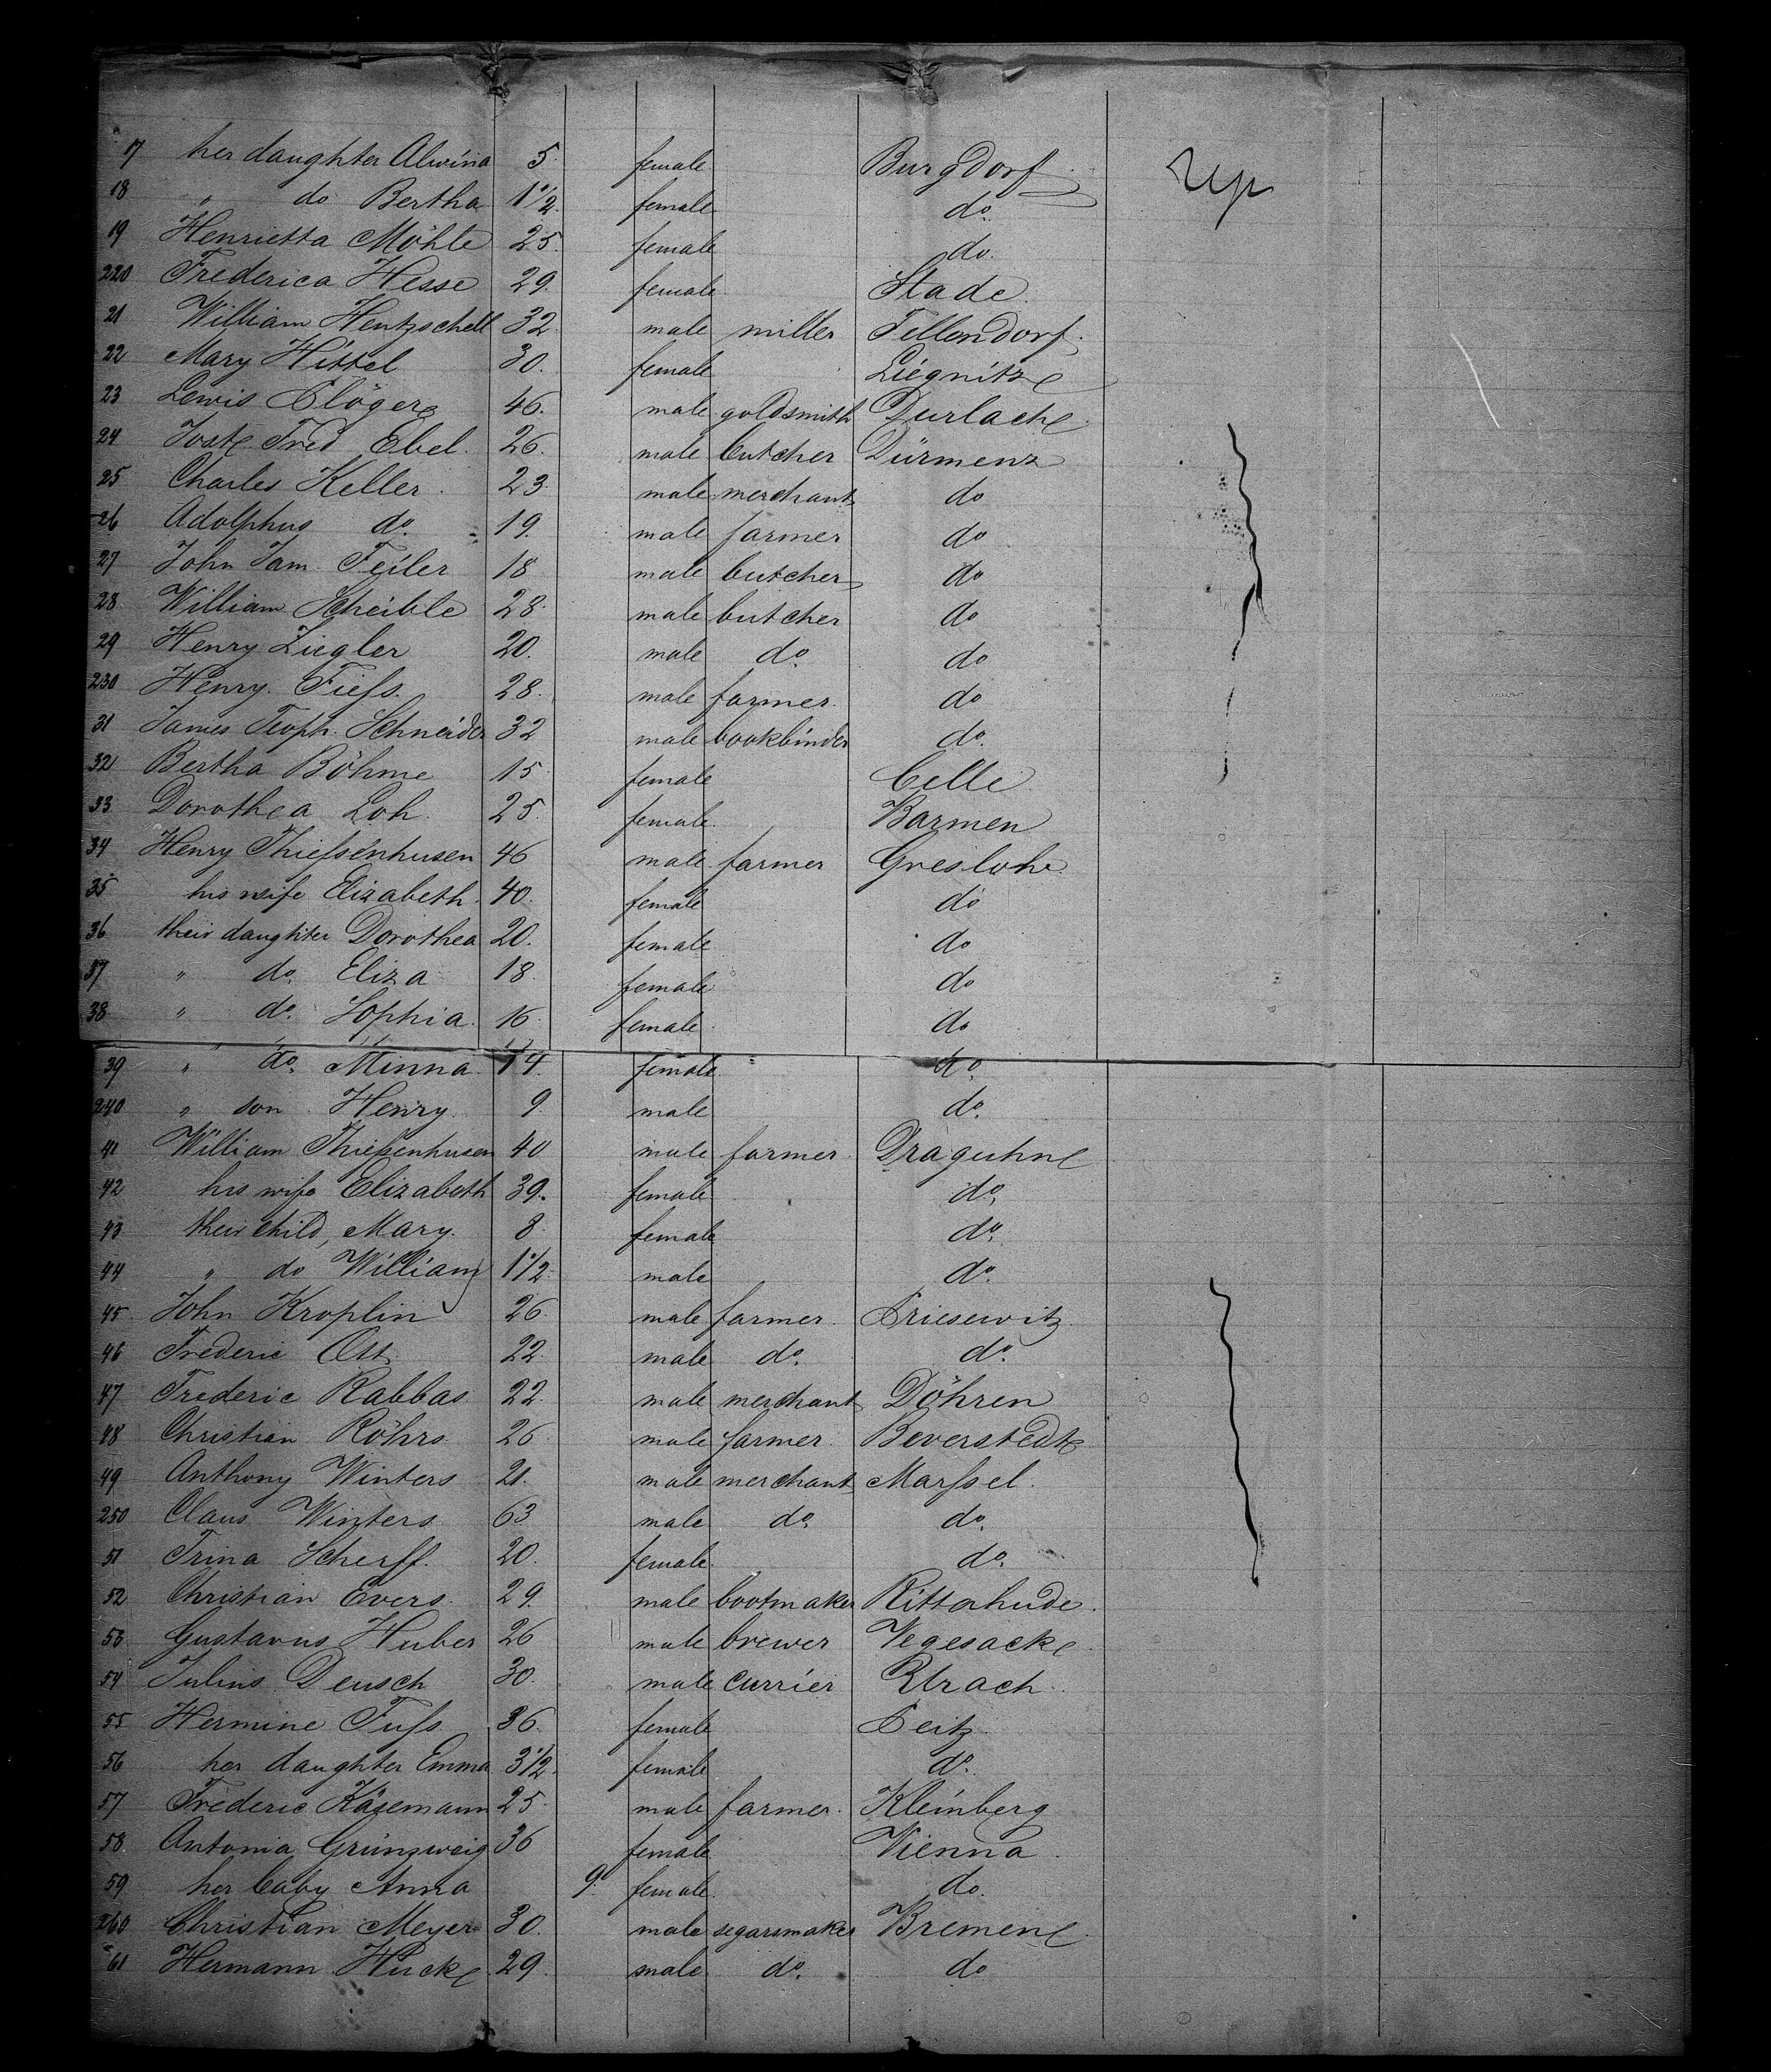 17 her daughter Alwina 5. female. Burgdorf
18 " do Bertha 1 1/2. female do.
19 Henrietta Möhle 25. female do.
220 Frederica Hesse 29. female. Stade.
21 William Hentzschell 32 male miller Tellendorf.
22 Mary Hittel 30. female Liegnitz
23 Lewis Plöger 46. male goldsmith Durlach
24 Fred Ebel. 26. male butcher Dürmenz
25 Charles Keller. 23. male merchant do
26 Adolphus do. 19. male farmer do
27 John Jam. Feiler 18 male butcher do
28 William Scheible 28. male butcher do
29 Henry Ziegler 20. male do. do
230 Henry Fiess. 28. male farmer. do
31 James Teoph. Schneider 32 male bookbinder do.
32 Bertha Böhme 15. female Celle.
33 Dorothea Loh. 25. female. Barmen
34 Henry Thiessenhusen 46 male farmer Greslohe
35 his wife Elizabeth. 40. female do
36 their daughter Dorothea 20. female do
37 " do. Eliza 18. female do
38 " do. Sophia. 16. female. do
39 " do. Minna. 14. female. do.
240 " son Henry. 9 male do.
41 William Thiessenhusen 40 male farmer. Draguhn
42 his wife Elizabeth 39. female do.
43 their child, Mary. 8. female do.
44 " do William 1 1/2. male do.
45. John Kroplin 26. male farmer. Priesewitz.
46 Frederic Ott 22. male do. do.
47 Frederic Rabbas 22. male merchant Döhren
48 Christian Röhrs 26. male farmer. Beverstedt
49 Anthony Winters 21. male merchant Marssel.
250 Claus Winters 63. male do. do.
51 Trina Scherff. 20. female. do.
52 Christian Evers. 29. male bootmaker Ritterhude.
53 Gustavus Huber 26 male brewer Vegesack
54 Julius Deusch 30. male currier Urach.
55 Hermine Fuss 36. female Peitz.
56 her daughter Emma 3 1/2. female do.
57 Frederic Käsemann 25. male farmer. Kleinberg
58 Antonia Grünzweig 36 female Vienna.
59 her baby Anna 9. female. do.
260 Christian Meyer 30. male segarsmaker Bremen
61 Hermann Huck 29. male do. do